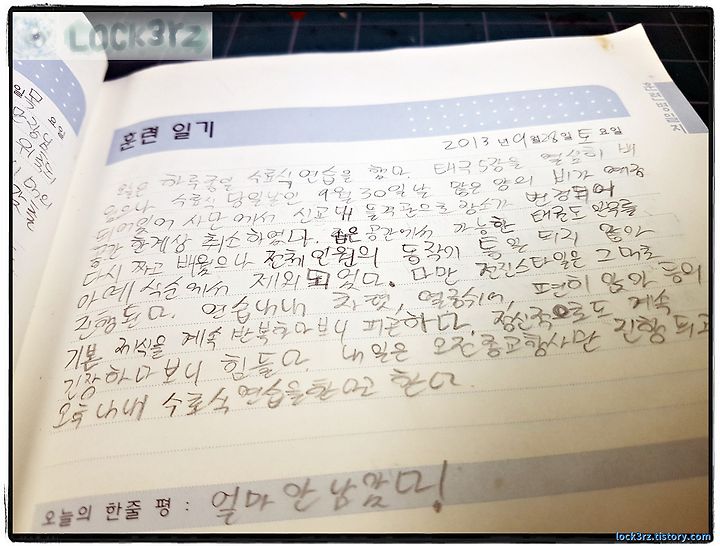 Lock3rz
훈련 일기
2013 년 9 월 28 일 토 요일
오늘은 하루종일 수료식 연습을 했다. 태극 5장을 열심히 배
웠으나 수료식 당일날인 9월 30일날 많은 양의 비가 예정
되어있어 사단에서 신교대 장소가 변경되어
공간 한계상 취소하였다. 좁은 공간에서 가능한 태권도 안무를
다시 짜고 배웠으나 전체인원의 동작이 통일 되지 않아
아예 식순에서 제외되었다. 다만 스타일은 그대로
진행된다. 연습내내 차렷, 열중쉬어, 편히 앉아 등의
기본 제식을 계속 반복하다보니 피곤하다. 정신적으로도 계속
긴장하다보니 힘들다. 내일은 오전 종교행사만 진행되고
오후내내 수료식 연습을 한다고 한다.
오늘의 한줄 평 : 얼마 안남았다!
lock3rz.tistory.com